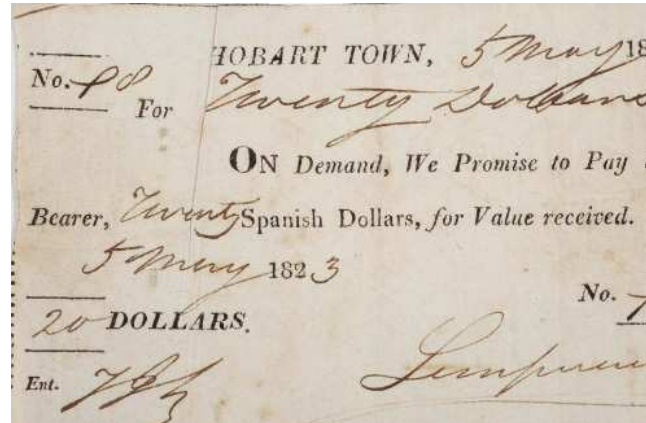 HOBART TOWN, 5 May 18
No.
For Twenty Dollars
ON Demand, We Promise to Pay
Bearer, Twenty Spanish Dollars, for Value received.
5 May 1823
No.
20 DOLLARS.
Ent.